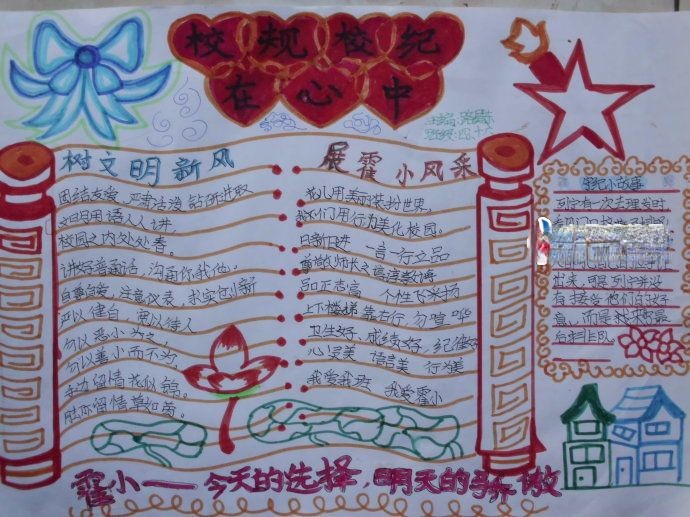 校规校纪
在心中
主编:
班级:四.十六
树文明新风
团结友爱,严肃活泼,钻研进取
文明用语人人讲,
校园之内处处香。
讲好普通话,沟通你我他。
自尊自爱,注意仪表,求实创新
严以律自,宽以待人
勿以恶小为之,
勿以善小而不为。
手边留情花似锦。
脚你留情草如茵。
展霍小风采
花儿用美丽装扮世界,
我们用行为美化校园。
日新日进 一言一行立品
尊敬师长之谆谆教诲
品正志高 个性飞采扬
上下楼梯靠右行,勿喧哗
卫生好、成绩好、纪律好
心灵美 语言美 行为美
我爱我班 我爱霍小
列宁有一次去理发时,
出来,可是列宁并没
有接受他们的好
意,而是
霍小——今天的选择,明天的骄傲